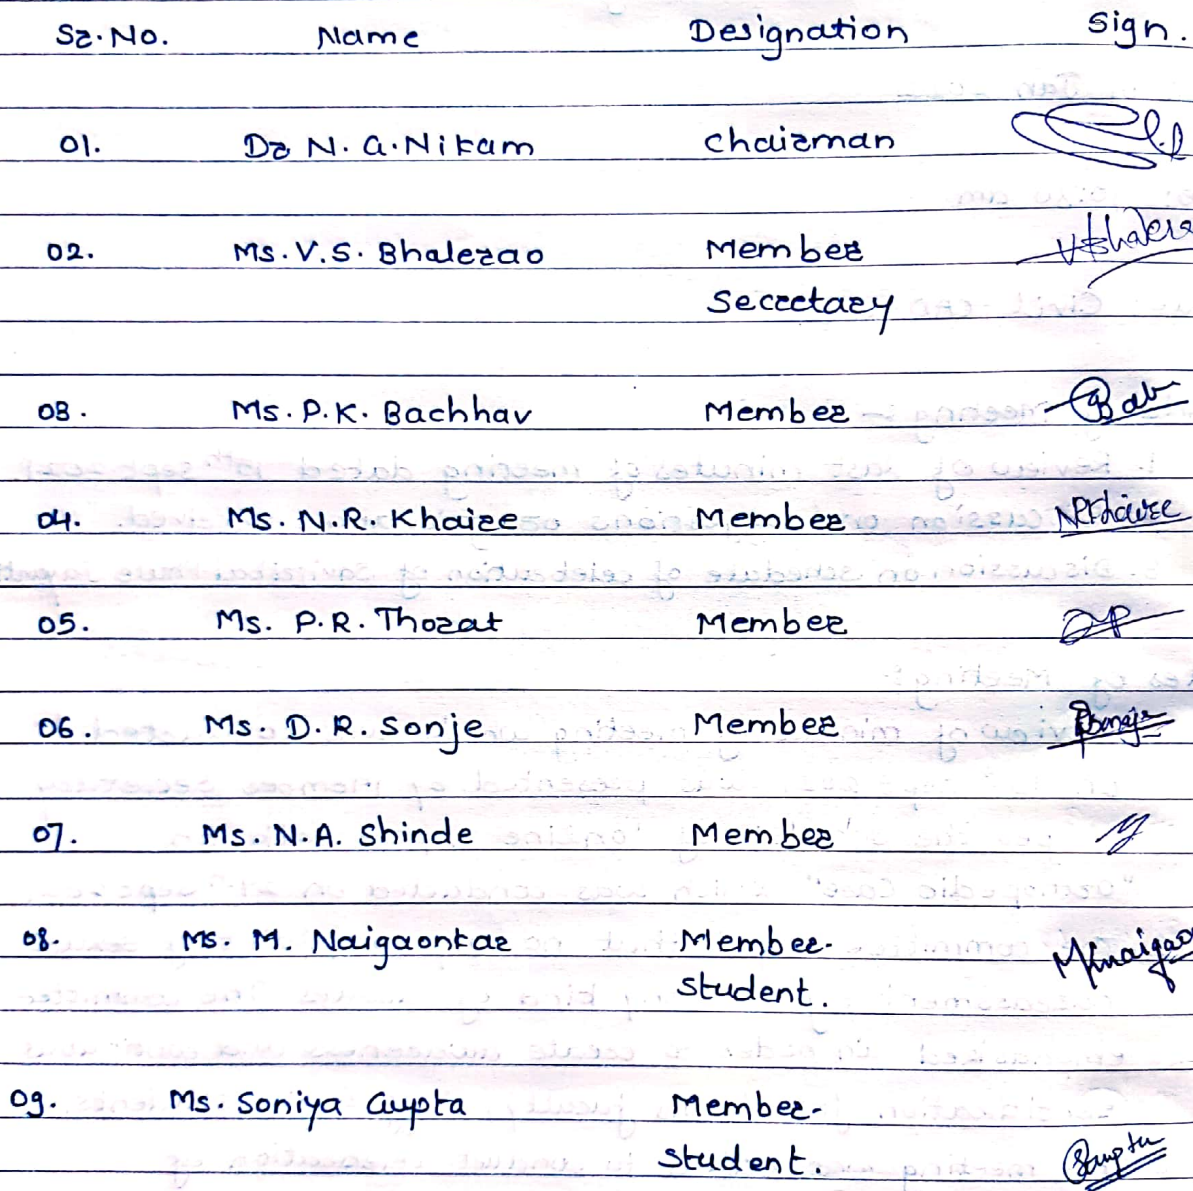 Sr. No. Name Designation Sign.
01. Dr N. A. Nikam Chairman
02. Ms. V. S. Bhalerao Member
Secretary
03. Ms. P. K. Bachhav Member
04. Ms. N. R. Khaire Member NRKhaire
05. Ms. P. R. Thorat Member
06. Ms. D. R. Sonje Member
07. Ms. N. A. Shinde Member
08. Ms. M. Naigaonkar Member-
Student.
09. Ms. Soniya Gupta Member-
Student.